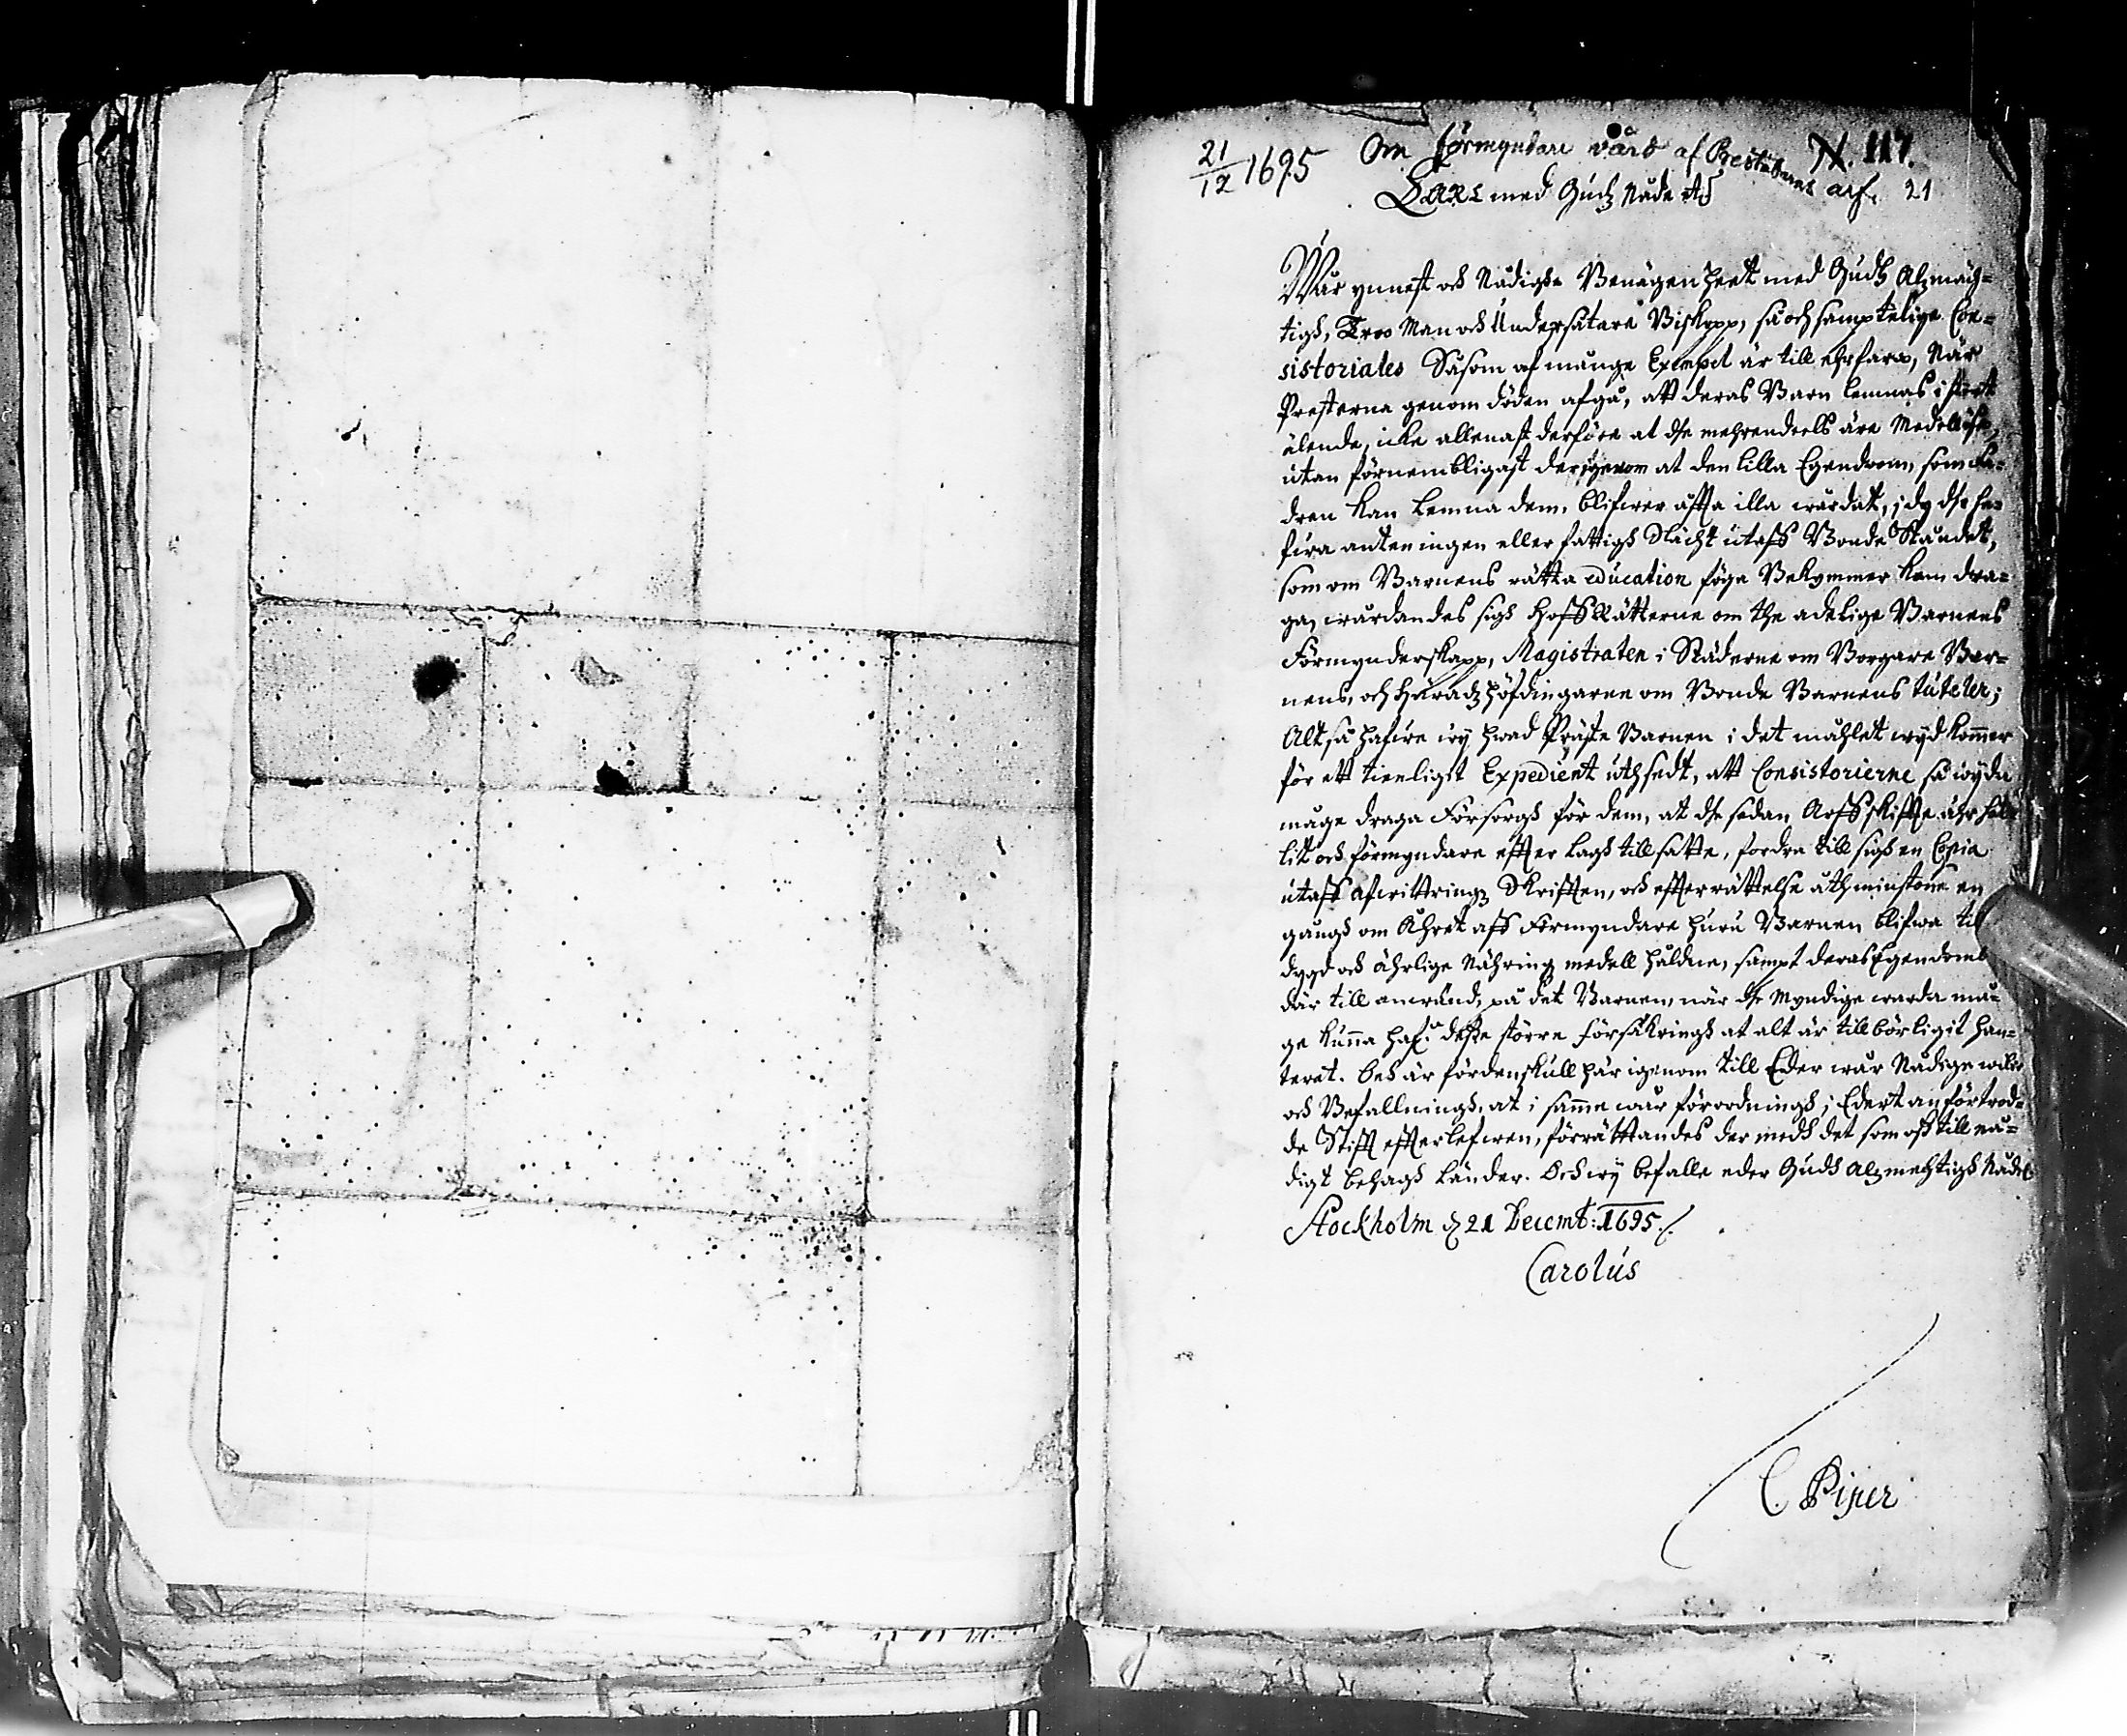 21/12 1695 Om förmyndare vård af Presternas arf. N. 117.
21
Carl med Gudz Nåde etc
Wår ynnest och Nådigste Benägenheet med Gudh Alzmäch-
tigh, Troo Man och Undersåtare Biskopp, så och samptelige Con-
sistoriales Såsom af månge Exempel är till ehrfara, När
Presterna genom döden afgå, att deras Barn lemnas i stort
älende, icke allenast derföre at dhe mehrendeels äre Medellöse,
utan förnembligast derigenom at den lilla Egendom, som Fa-
dren kan lemna dem, blifwer offta illa wårdat, i dy dhe ha-
fwa anten ingen eller fattigh Slächt utaff Bonde Ståndet,
som om Barnens rätta education föga Bekymmer kan dra-
ga, wårdandes sigh HoffRätterne om the adelige Barnens
Förmynderskapp, Magistraten i Städerne om Borgare Bar-
nens, och Häradzhöfdingarne om Bonde Barnens tuteler;
Altså hafwe wij hwad Präste Barnen i det måhlet wijdkommer
för ett tienligit Expedient uthsedt, att Consistorierne så wijda
måge draga Försorgh för dem, at dhe sedan Arffskiffte ähr hål-
lit och förmyndare effter lagh tillsatte, fordra till sigh en Copia
utaff afwittringz Skrifften, och effterrättelse åthminstone en
gångh om Åhret aff Förmyndare huru Barnen blifwa til
dygd och ährlige Nähringz medell håldne, sampt deras Egendomb
där till anwänd, på det Barnen, när dhe Myndige warda må-
ge kunna haf:a desse större försäkringh at alt är tillbörligit han-
terat. Och är fördenskull här igenom till Eder wår Nådige wilie
och Befallningh, at i samme wår förordningh i Edert anförtrod-
de Stifft effterlefwen, förrättandes der medh det som oss till nå-
digt behagh länder. Och wij befalle eder Gudh alzmechtigh Nådel.
Stockholm d 21 Decemb: 1695.
Carolus
C. Piper